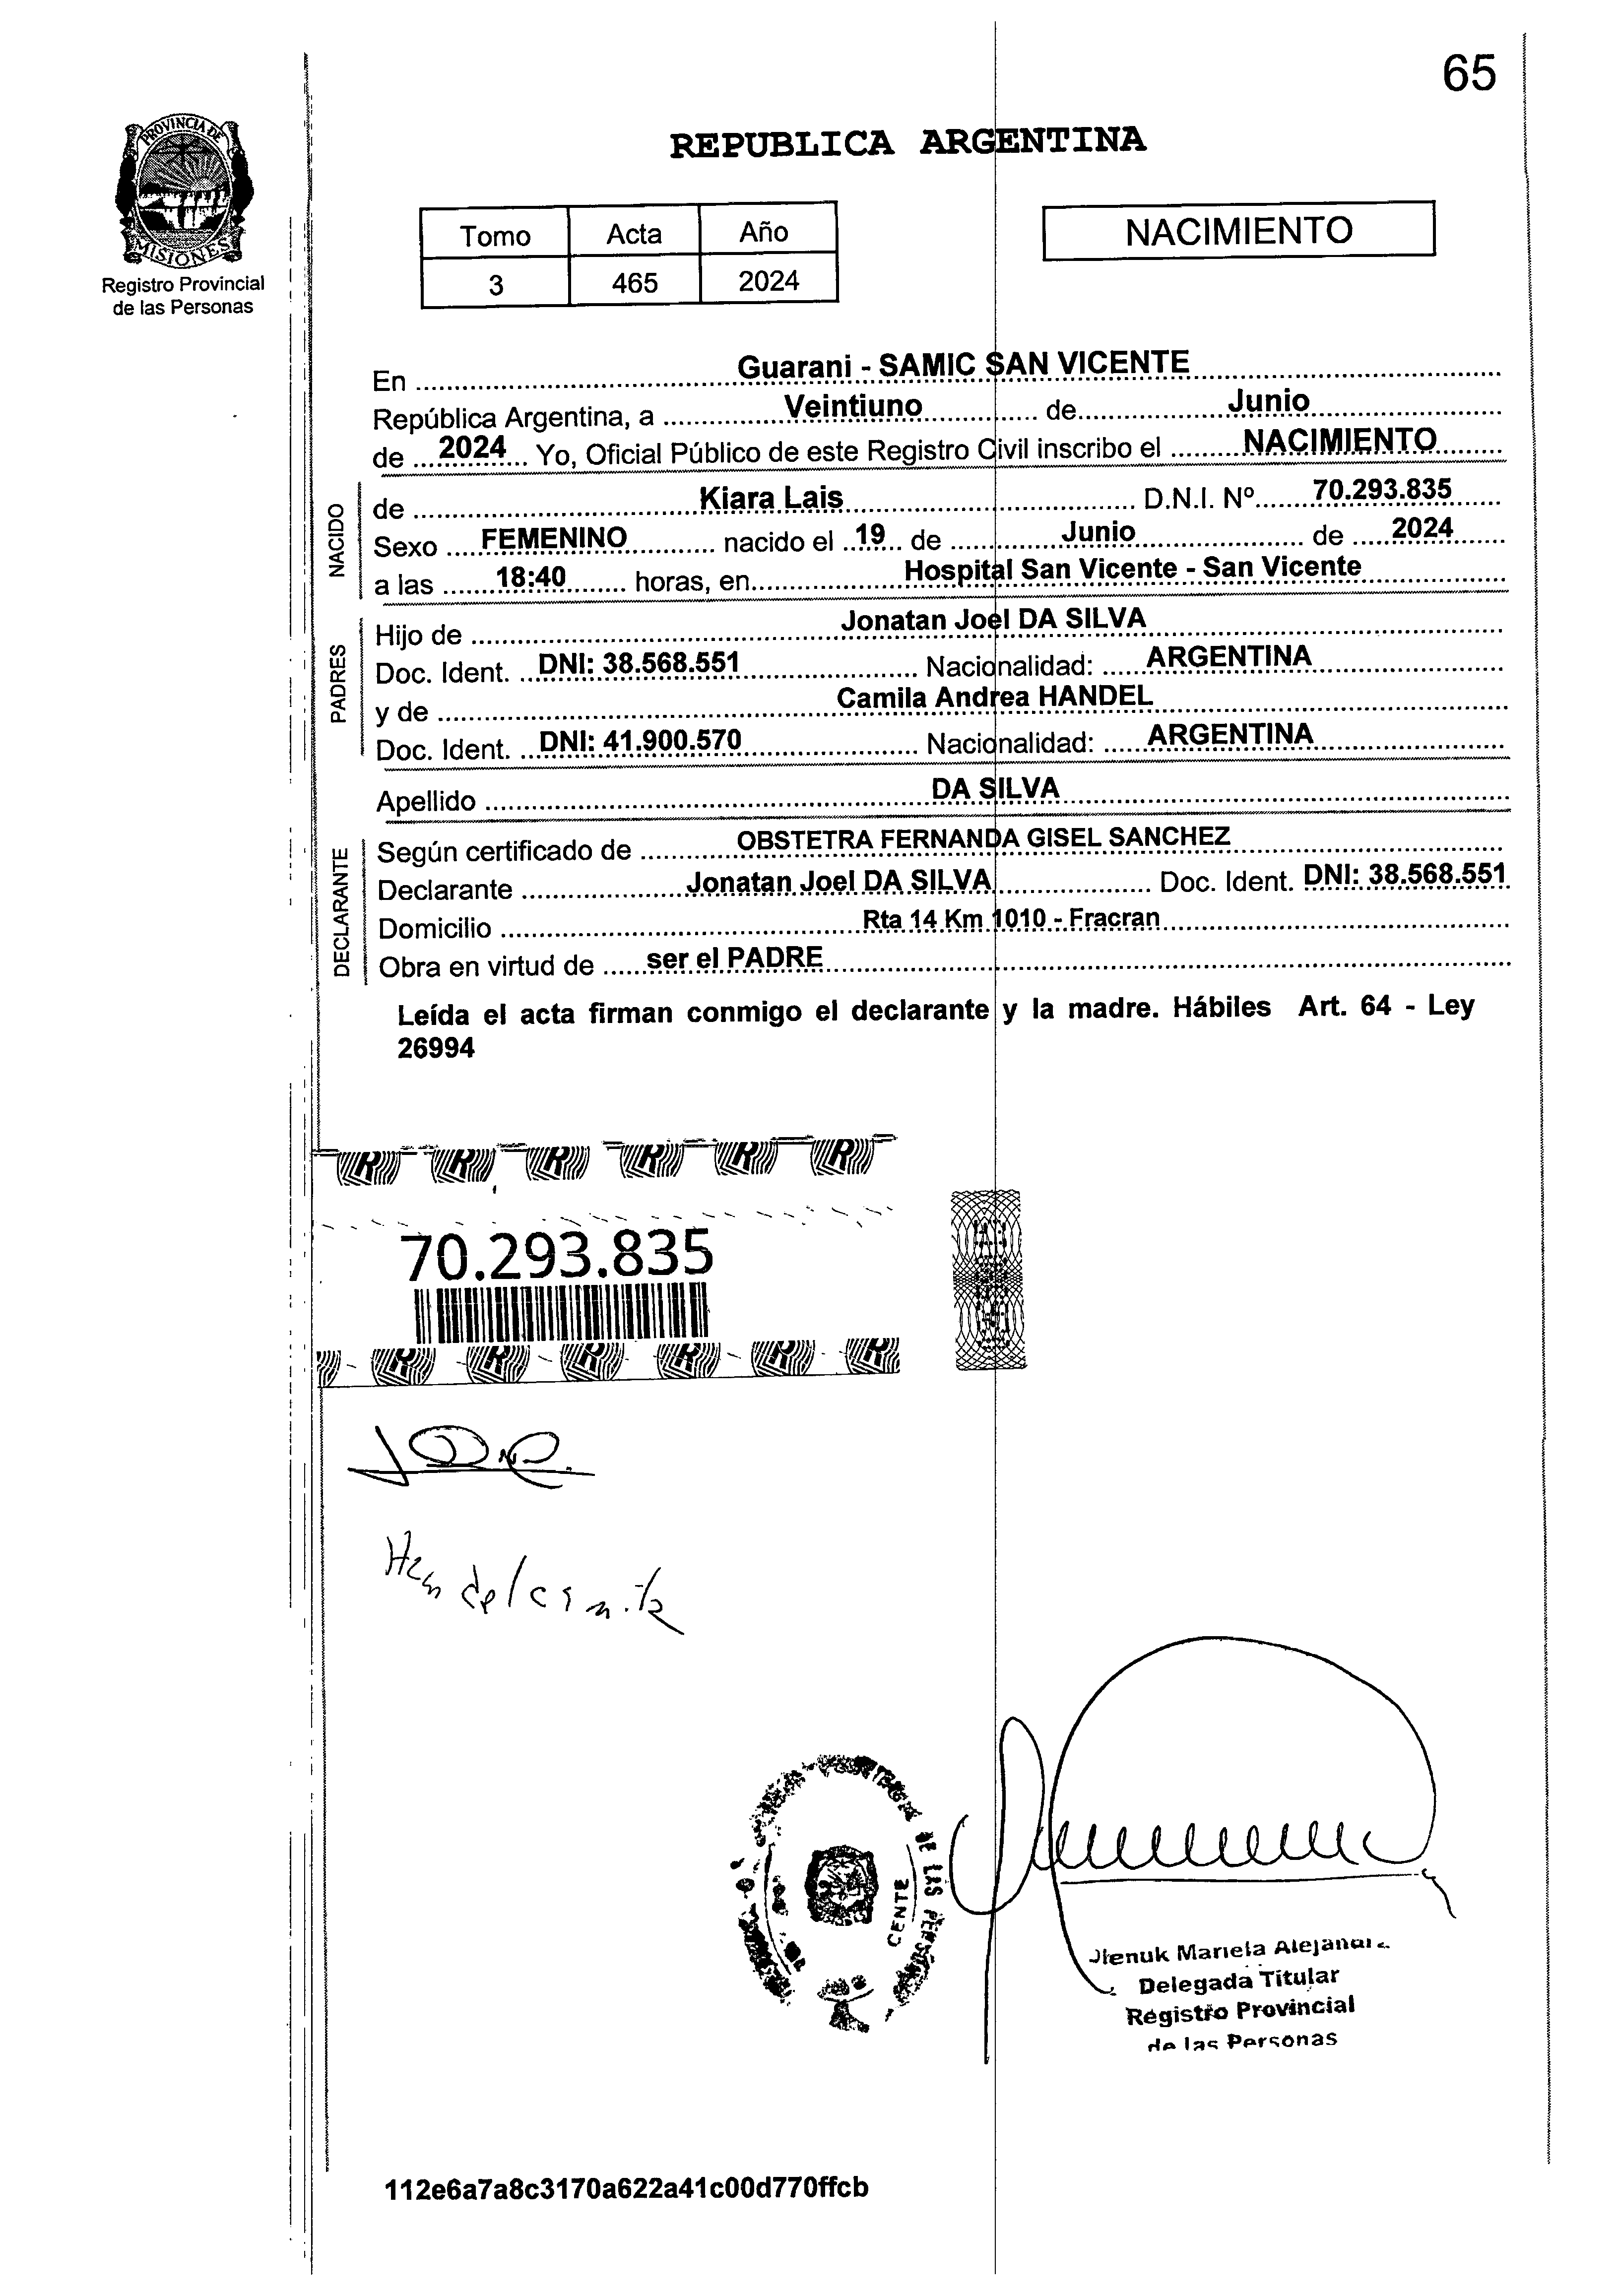 65
PROVINCIA DE
MISIONES
Registro Provincial
de las Personas
REPUBLICA ARGENTINA
Tomo Acta Año
3 465 2024
NACIMIENTO
En Guarani - SAMIC SAN VICENTE
República Argentina, a Veintiuno de Junio
de 2024 Yo, Oficial Público de este Registro Civil inscribo el NACIMIENTO
NACIDO
de Kiara Lais D.N.I. Nº 70.293.835
Sexo FEMENINO nacido el 19 de Junio de 2024
a las 18:40 horas, en Hospital San Vicente - San Vicente
PADRES
Hijo de Jonatan Joel DA SILVA
Doc. Ident. DNI: 38.568.551 Nacionalidad: ARGENTINA
y de Camila Andrea HANDEL
Doc. Ident. DNI: 41.900.570 Nacionalidad: ARGENTINA
Apellido DA SILVA
DECLARANTE
Según certificado de OBSTETRA FERNANDA GISEL SANCHEZ
Declarante Jonatan Joel DA SILVA Doc. Ident. DNI: 38.568.551
Domicilio Rta 14 Km 1010 - Fracran
Obra en virtud de ser el PADRE
Leída el acta firman conmigo el declarante y la madre. Hábiles Art. 64 - Ley
26994
70.293.835
Handel camila
DE LAS
CENTE
Mariela
Delegada Titular
Registro Provincial
de las Personas
112e6a7a8c3170a622a41c00d770ffcb